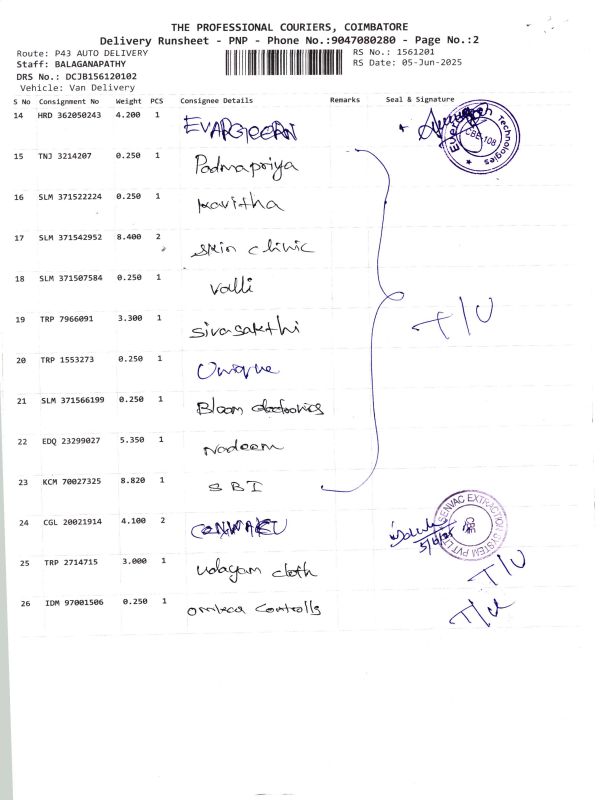 THE PROFESSIONAL COURIERS, COIMBATORE
Delivery Runsheet - PNP - Phone No.:9047080280 - Page No.:2
Route: P43 AUTO DELIVERY RS No.: 1561201
Staff: BALAGANAPATHY RS Date: 05-Jun-2025
DRS No.: DCJB156120102
Vehicle: Van Delivery
S No Consignment No Weight PCS Consignee Details Remarks Seal & Signature
14 HRD 362050243 4.200 1 EVARGREEN Evergreen Technologies CBE-108
15 TNJ 3214207 0.250 1 Padmapriya
16 SLM 371522224 0.250 1 Kavitha
17 SLM 371542952 8.400 2 Skin clinic
18 SLM 371507584 0.250 1 Valli
19 TRP 7966091 3.300 1 Sivasakthi T/U
20 TRP 1553273 0.250 1 Unique
21 SLM 371566199 0.250 1 Bloom electronics
22 EDQ 23299027 5.350 1 Nadeem
23 KCM 70027325 8.820 1 SBI
24 CGL 20021914 4.100 2 SENVAC EXTRACTION SYSTEM PVT LTD 5/6/25
25 TRP 2714715 3.000 1 Udayam cloth T/U
26 IDM 97001506 0.250 1 Controlls T/U